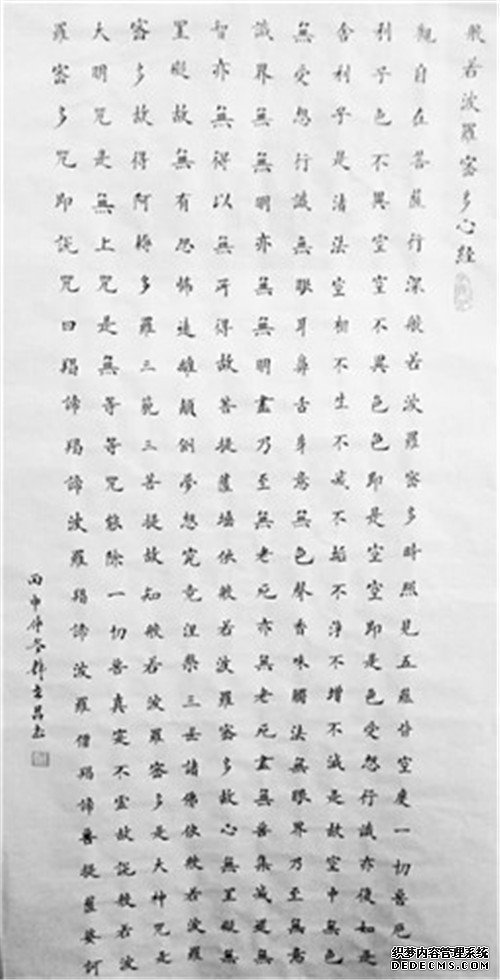 般若波羅密多心經
觀自在菩薩行深般若波羅密多時照見五蘊皆空度一切苦厄舍
利子色不異空空不異色色即是空空即是色受想行識亦復如是
舍利子是諸法空相不生不滅不垢不淨不增不減是故空中無色
無受想行識無眼耳鼻舌身意無色聲香味觸法無眼界乃至無意
識界無無明亦無無明盡乃至無老死亦無老死盡無苦集滅道無
智亦無得以無所得故菩提薩埵依般若波羅密多故心無罣礙無
罣礙故無有恐怖遠離顛倒夢想究竟涅槃三世諸佛依般若波羅
密多故得阿耨多羅三藐三菩提故知般若波羅密多是大神咒是
大明咒是無上咒是無等等咒能除一切苦真實不虛故說般若波
羅密多咒即說咒曰揭諦揭諦波羅揭諦波羅僧揭諦菩提薩婆訶
丙申年冬
织梦内容管理系统
DEDECMS.COM